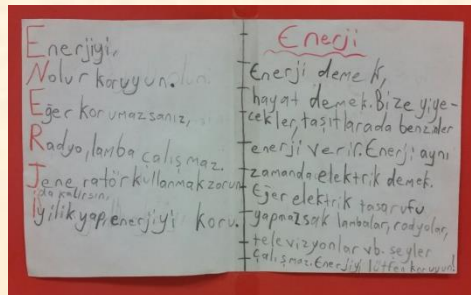 Enerjiyi,
Nolur koruyun.
Eğer korumazsanız,
Radyo, lamba çalışmaz.
Jeneratör kullanmak zorun
da kalırsın,
İyilik yap, enerjiyi koru.
Enerji
Enerji demek,
hayat demek. Bize yiye-
cekler, taşıtlarada benzinler
enerji verir. Enerji aynı
zamanda elektrik demek.
Eğer elektrik tasarufu
yapmazsak lambalar, radyolar,
televizyonlar vb. şeyler
çalışmaz. Enerjiyi lütfen koruyun!